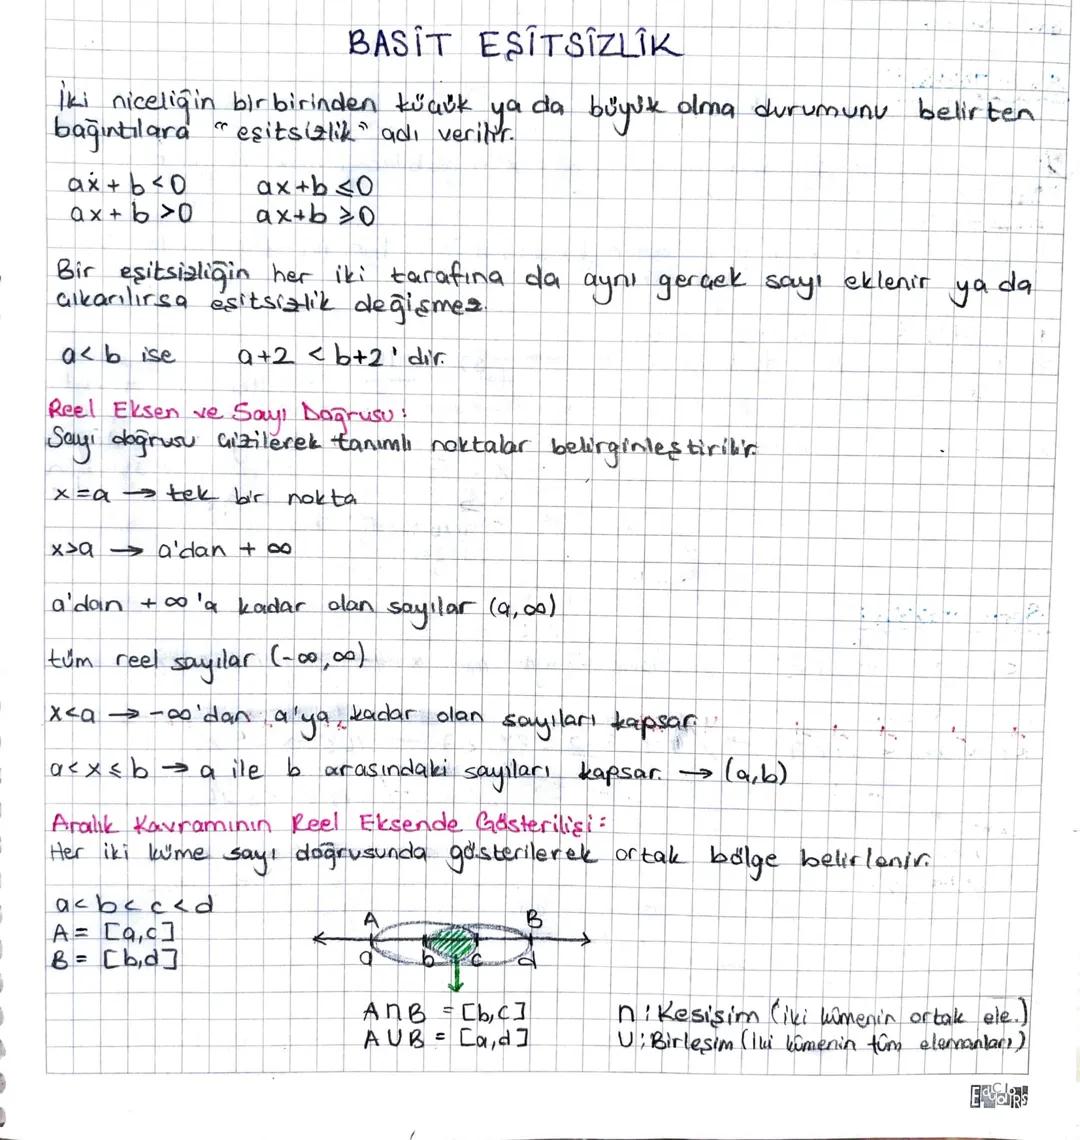 BASİT EŞİTSİZLİK
İki niceliğin birbirinden küçük ya da büyük olma durumunu belirten
bağıntılara "eşitsizlik" adı verilir.
ax + b < 0 ax + b ≤ 0
ax + b > 0 ax + b ≥ 0
Bir eşitsizliğin her iki tarafına da aynı gerçek sayı eklenir ya da
çıkarılırsa eşitsizlik değişmez.
a < b ise a+2 < b+2 'dir.
Reel Eksen ve Sayı Doğrusu:
Sayı doğrusu çizilerek tanımlı noktalar belirginleştirilir.
x = a → tek bir nokta
x > a → a'dan + ∞
a'dan + ∞ 'a kadar olan sayılar (a, ∞)
tüm reel sayılar (-∞, ∞)
x < a → -∞'dan a'ya kadar olan sayıları kapsar
a < x ≤ b → a ile b arasındaki sayıları kapsar. → (a,b)
Aralık Kavramının Reel Eksende Gösterilişi:
Her iki küme sayı doğrusunda gösterilerek ortak bölge belirlenir.
a < b < c < d
A = [a,c]
B = [b,d]
A B
a b c d
A∩B = [b,c]
A∪B = [a,d]
∩ : Kesişim (iki kümenin ortak ele.)
∪ : Birleşim (İki kümenin tüm elemanları)